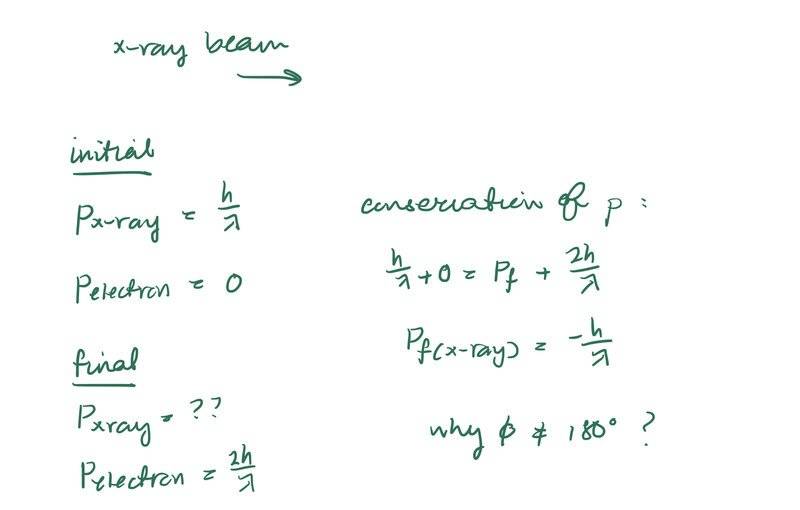 x-ray beam
→
initial
Px-ray = h/λ
Pelectron = 0
final
Pxray = ??
Pelectron = 2h/λ
conservation of p :
h/λ + 0 = Pf + 2h/λ
Pf(x-ray) = -h/λ
why ϕ ≠ 180° ?